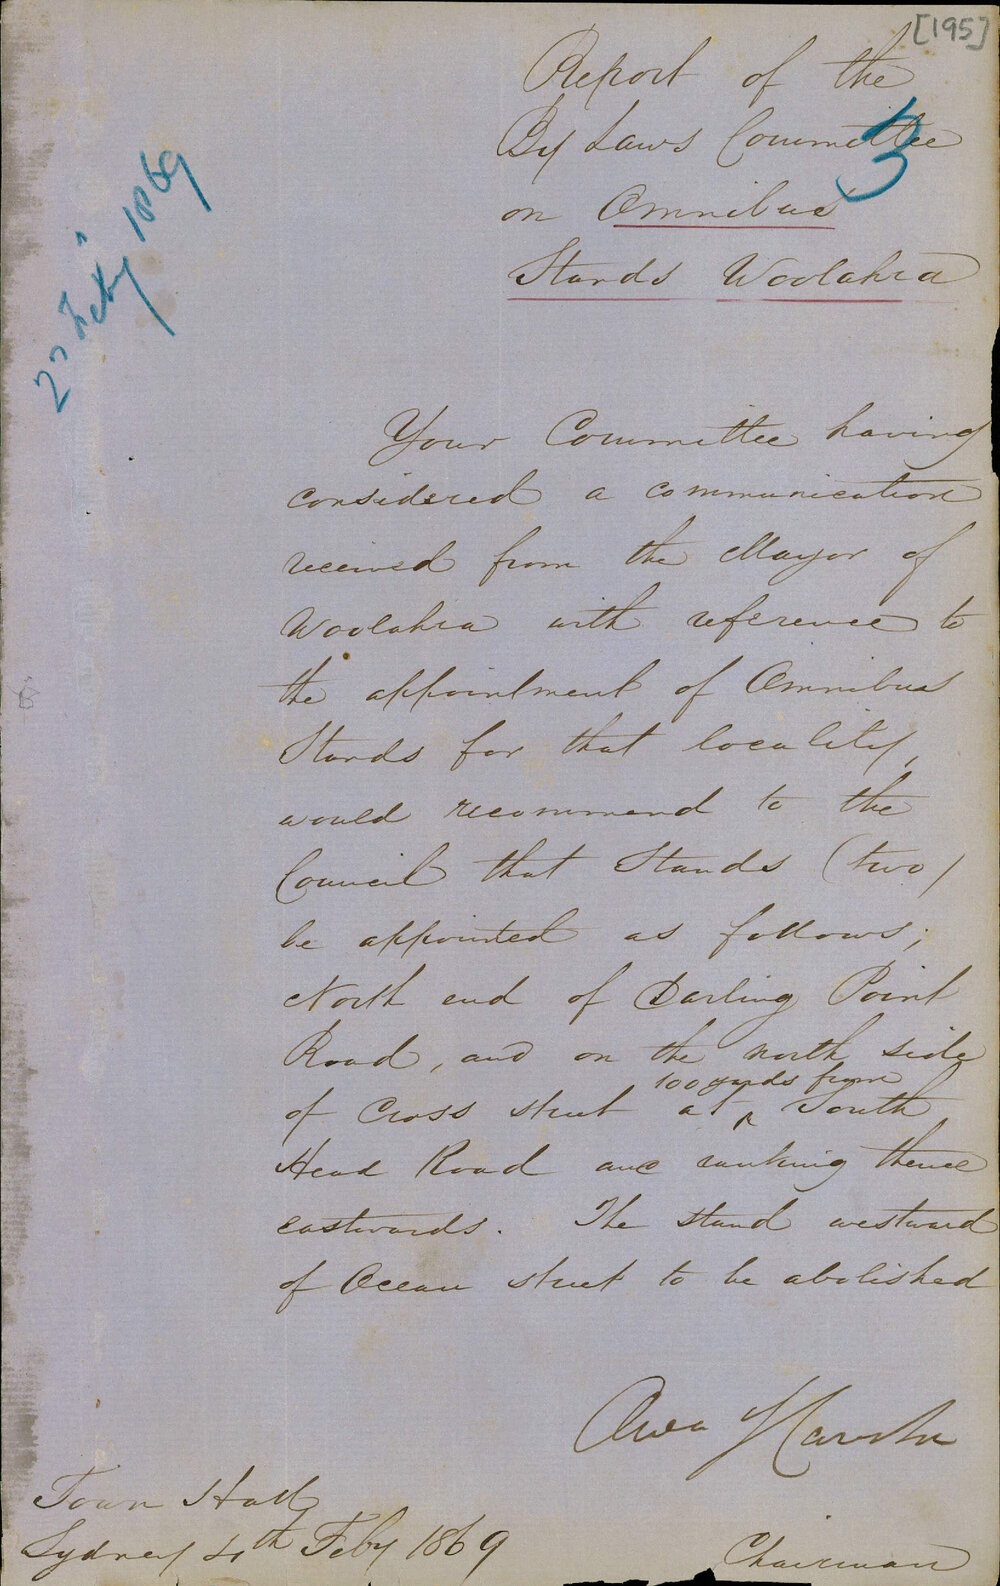 [195]
Report of the
By Laws Committee
3
on Omnibus
Stands Woolahra
Feby 1869
Your Committee having
considered a communication
received from the Mayor of
Woolahra with reference to
the appointment of Omnibus
Stands for that locality,
would recommend to the
Council that Stands (two)
be appointed as follows;
North end of Darling Point
Road, and on the north side
100 yards from
of Cross street at ^ South
Head Road and ranking thence
eastwards. The stand westward
of Ocean street to be abolished
Chairman
Town Hall
Sydney 4th Feby 1869